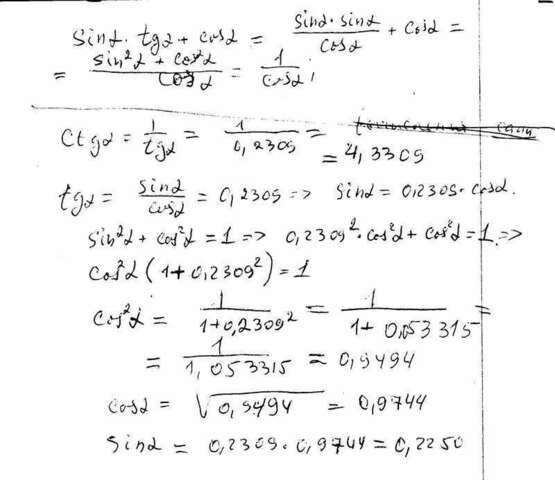 sinα·tgα + cosα = sinα·sinα/cosα + cosα =
= sin²α + cos²α/cosα = 1/cosα;
ctgα = 1/tgα = 1/0,2309 =
= 4,3309
tgα = sinα/cosα = 0,2309 => sinα = 0,2309·cosα.
sin²α + cos²α = 1 => 0,2309²·cos²α + cos²α = 1 =>
cos²α(1+0,2309²) = 1
cos²α = 1/1+0,2309² = 1/1+0,053315 =
= 1/1,053315 = 0,9494
cosα = √0,9494 = 0,9744
sinα = 0,2309·0,9744 = 0,2250